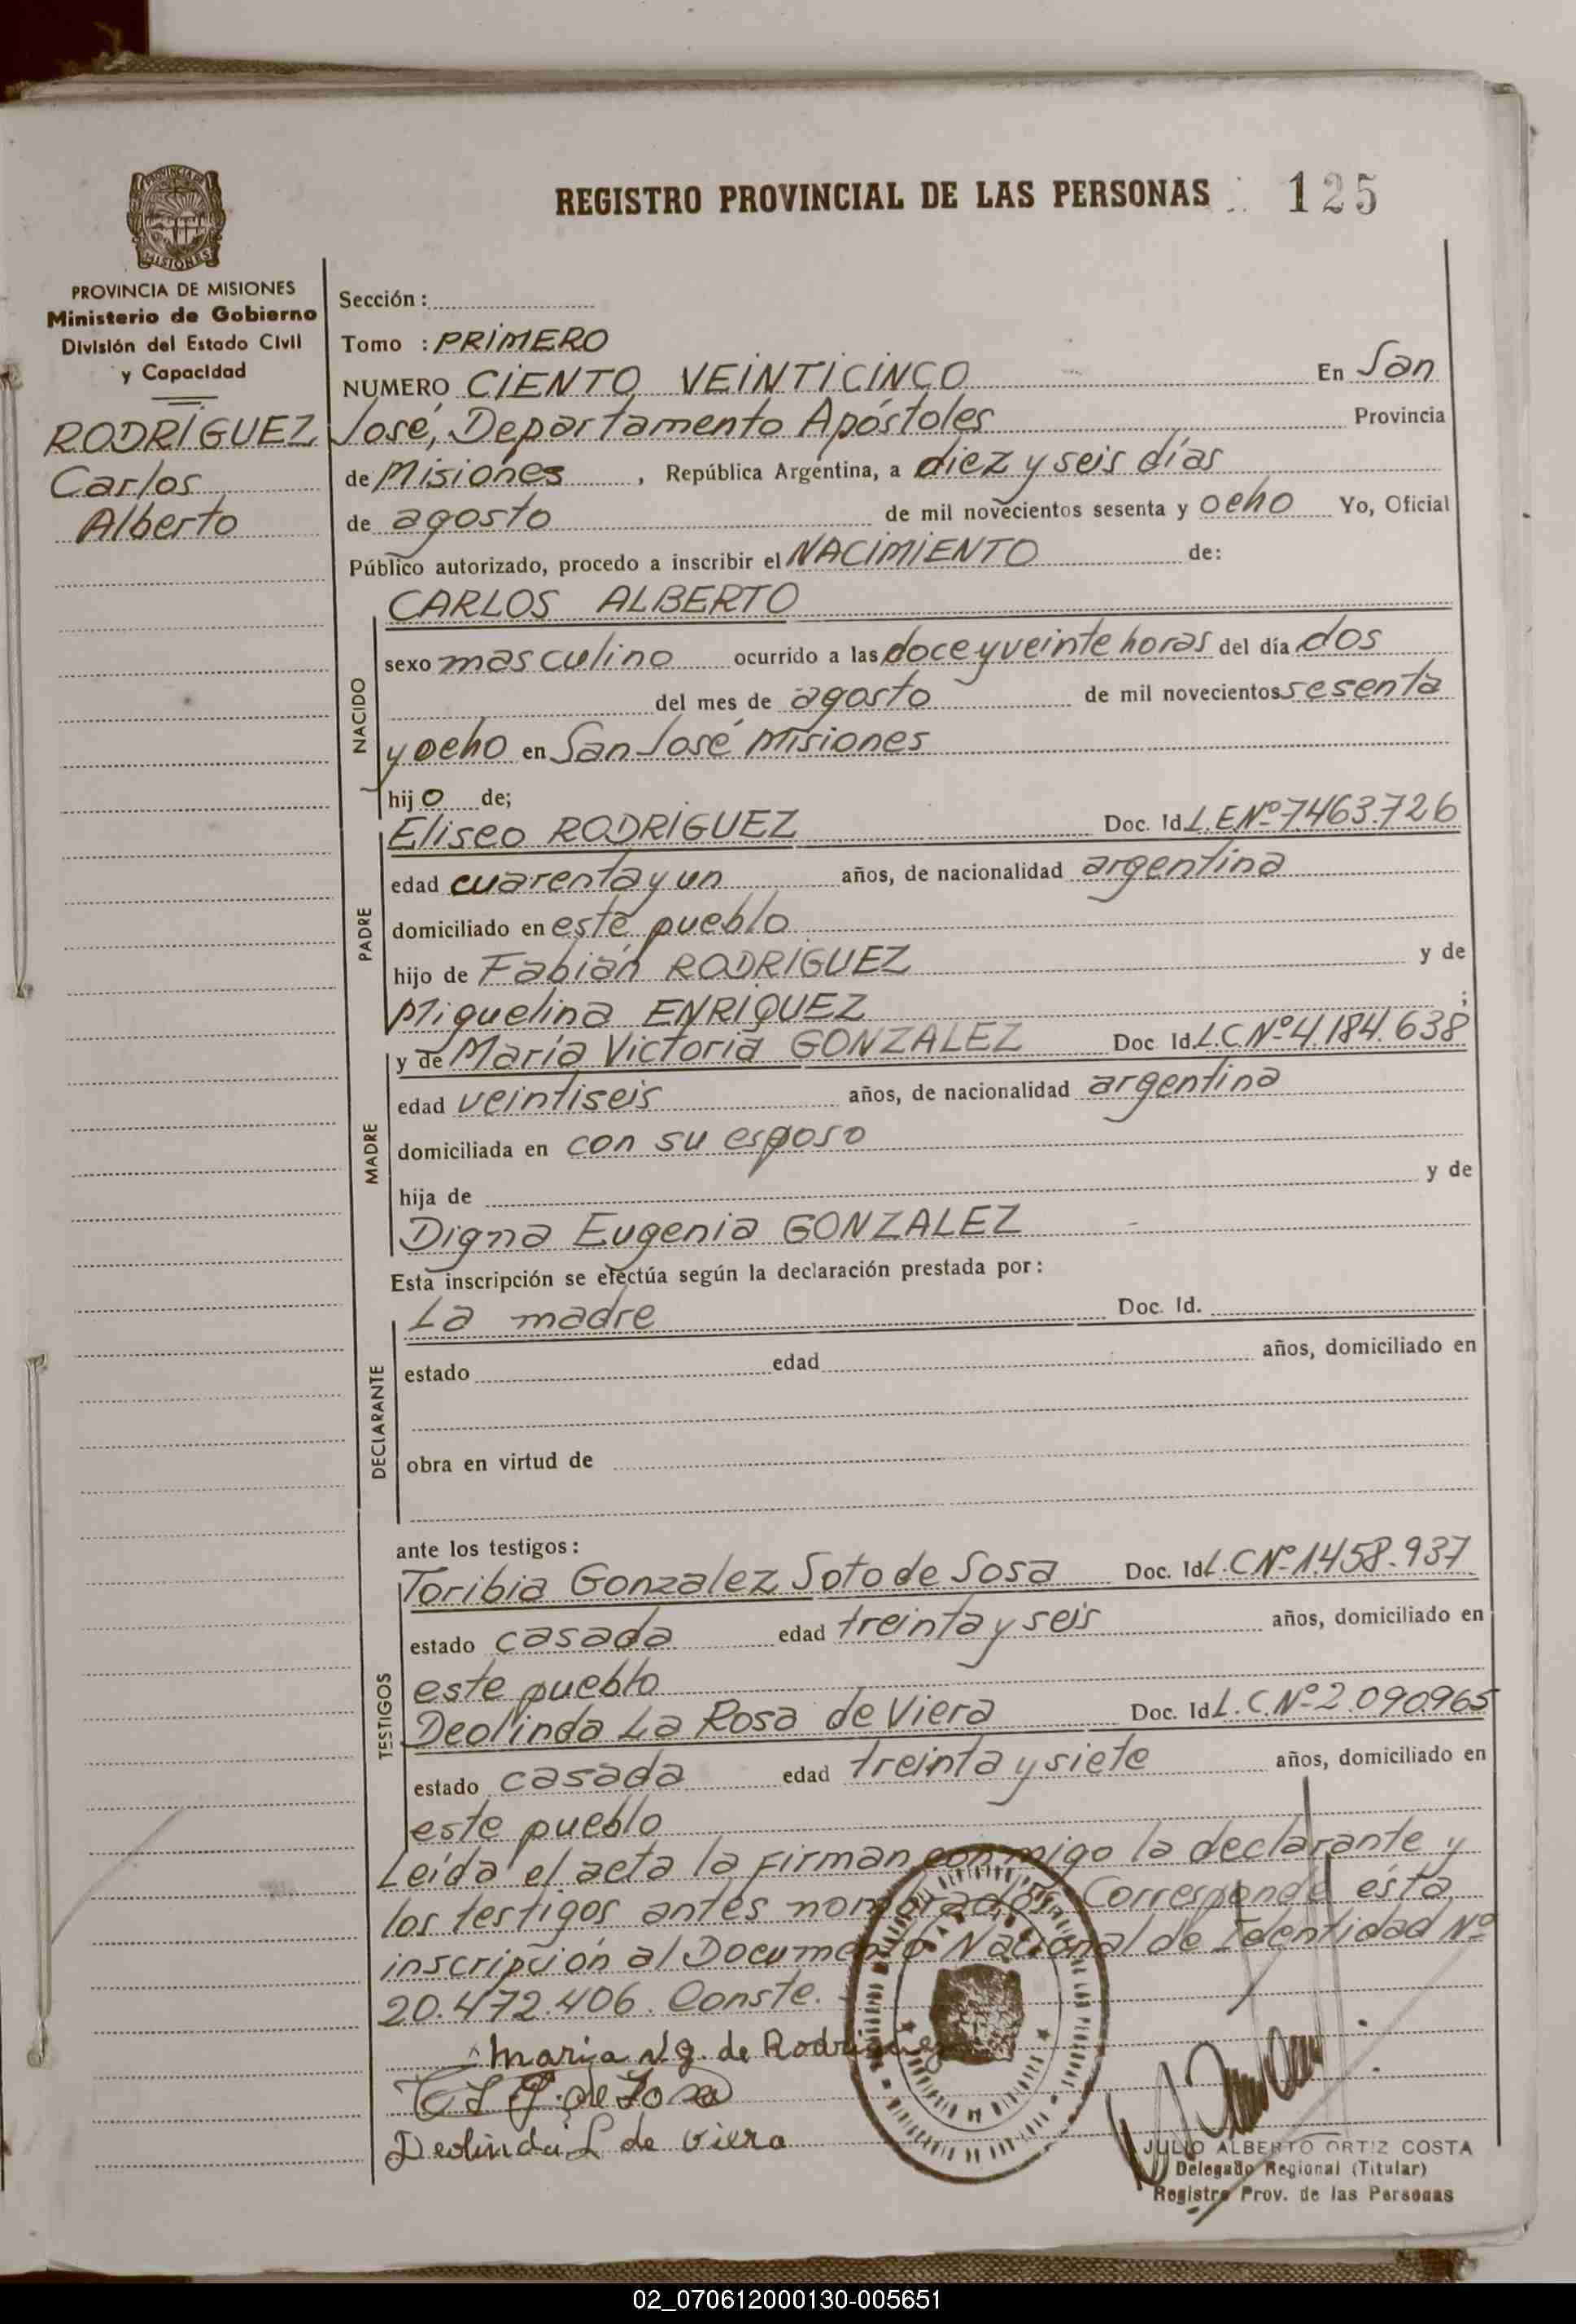 REGISTRO PROVINCIAL DE LAS PERSONAS 125
PROVINCIA DE
MISIONES
PROVINCIA DE MISIONES
Ministerio de Gobierno
División del Estado Civil
y Capacidad
RODRÍGUEZ
Carlos
Alberto
Sección :
Tomo : PRIMERO
NUMERO CIENTO VEINTICINCO En San
José, Departamento Apóstoles Provincia
de Misiones , República Argentina, a diez y seis días
de agosto de mil novecientos sesenta y ocho Yo, Oficial
Público autorizado, procedo a inscribir el NACIMIENTO de:
CARLOS ALBERTO
NACIDO
sexo masculino ocurrido a las doce y veinte horas del día dos
del mes de agosto de mil novecientos sesenta
y ocho en San José Misiones
hijo de;
PADRE
Eliseo RODRÍGUEZ Doc. Id. L.E.Nº 7.463.726
edad cuarenta y un años, de nacionalidad argentina
domiciliado en este pueblo
hijo de Fabián RODRÍGUEZ y de
Miguelina ENRIQUEZ ;
MADRE
y de María Victoria GONZALEZ Doc Id. L.C.Nº 4.184.638
edad veintiseis años, de nacionalidad argentina
domiciliada en con su esposo
hija de y de
Digna Eugenia GONZALEZ
Esta inscripción se efectúa según la declaración prestada por :
DECLARANTE
La madre Doc. Id.
estado edad años, domiciliado en
obra en virtud de
ante los testigos :
TESTIGOS
Toribia Gonzalez Soto de Sosa Doc. Id. L.C Nº 1.458.937
estado casada edad treinta y seis años, domiciliado en
este pueblo
Deolinda La Rosa de Viera Doc. Id. L.C.Nº 2.090.965
estado casada edad treinta y siete años, domiciliado en
este pueblo
Leída el acta la firman conmigo la declarante y
los testigos antes nombrados. Corresponde ésta
inscripción al Documento Nacional de Identidad Nº
20.472.406. Conste.
Maria V g. de Rodriguez
de Sosa
Deolinda L de Viera
JULIO ALBERTO ORTIZ COSTA
Delegado Regional (Titular)
Registro Prov. de las Personas
02_070612000130-005651